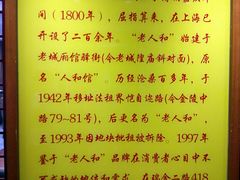 间（1800年），屈指算来，在上海已
开设了二百余年。“老人和”始建于
老城厢馆驿街（今老城隍庙斜对面），原
名“人和馆”。历经沧桑百多年，于
1942年移址法租界恺自迩路（今金陵中
路79～81号），后更名为“老人和”，
至1993年因地块批租被拆除。1997年
鉴于“老人和”品牌在消费者心目中不
在瑞金二路418